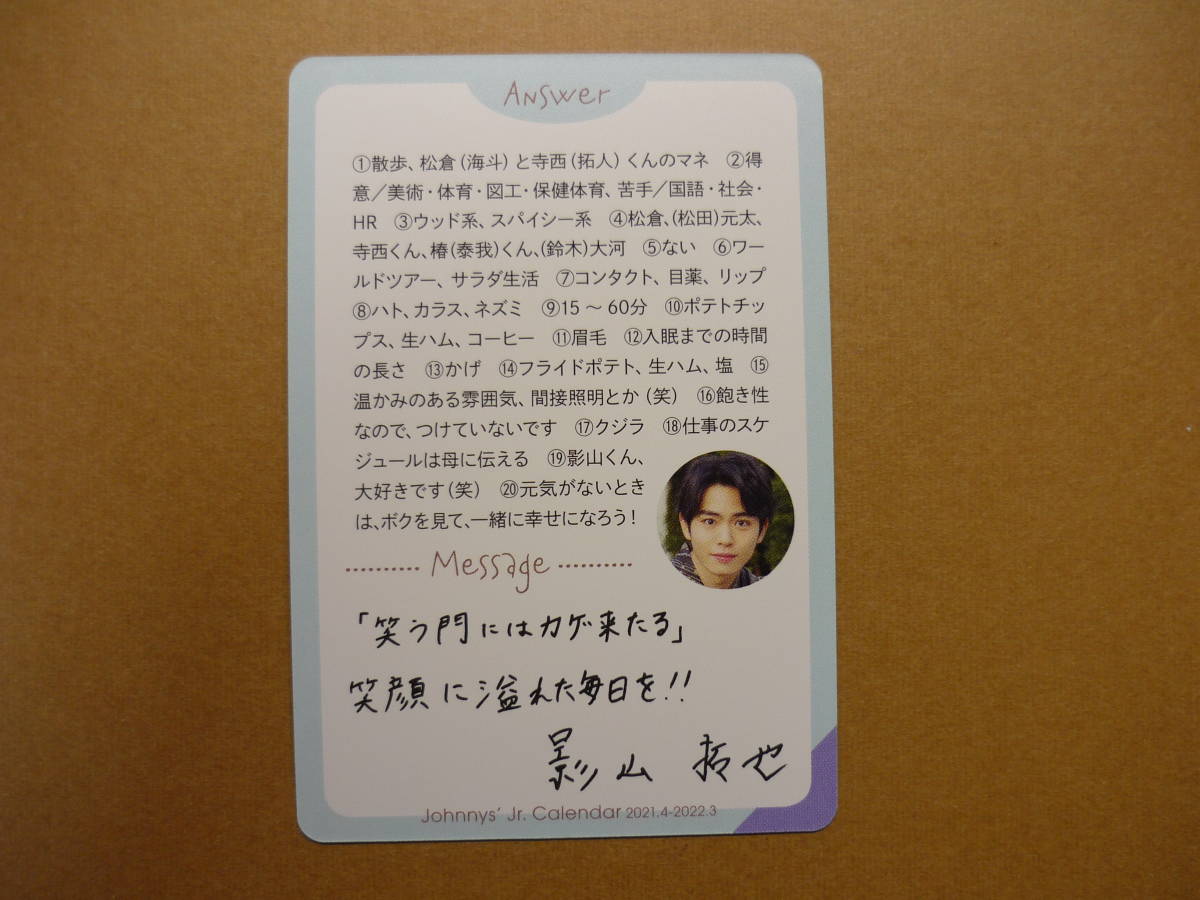 Answer
①散歩、松倉(海斗)と寺西(拓人)くんのマネ ②得
意／美術・体育・図工・保健体育、苦手／国語・社会・
HR ③ウッド系、スパイシー系 ④松倉、(松田)元太、
寺西くん、椿(泰我)くん、(鈴木)大河 ⑤ない ⑥ワー
ルドツアー、サラダ生活 ⑦コンタクト、目薬、リップ
⑧ハト、カラス、ネズミ ⑨15～60分 ⑩ポテトチッ
プス、生ハム、コーヒー ⑪眉毛 ⑫入眠までの時間
の長さ ⑬かげ ⑭フライドポテト、生ハム、塩 ⑮
温かみのある雰囲気、間接照明とか(笑) ⑯飽き性
なので、つけていないです ⑰クジラ ⑱仕事のスケ
ジュールは母に伝える ⑲影山くん、
大好きです(笑) ⑳元気がないとき
は、ボクを見て、一緒に幸せになろう！
Message
「笑う門にはカゲ来たる」
笑顔に溢れた毎日を!!
影山 拓也
Johnnys' Jr. Calendar 2021.4-2022.3